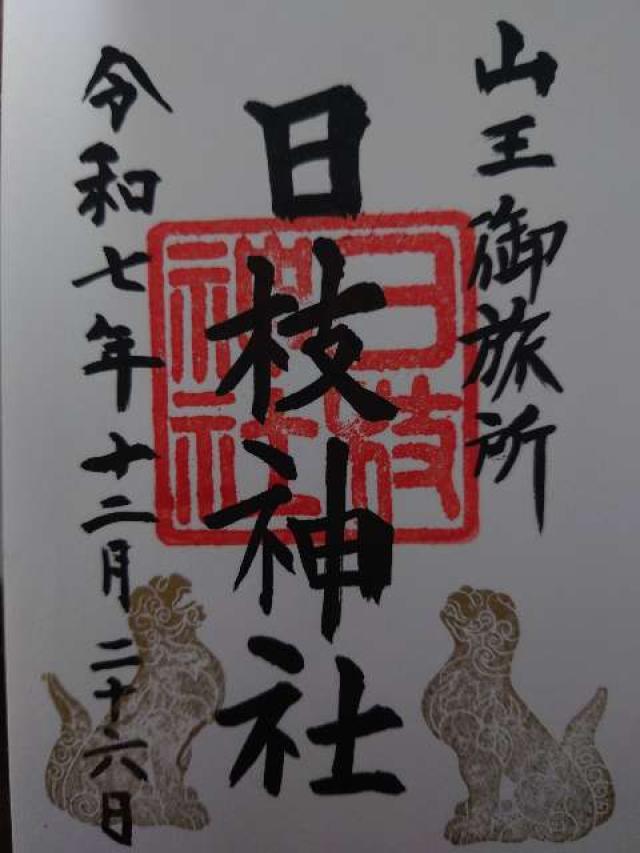 山王御旅所
日枝神社
日枝神社
令和七年十二月二十六日